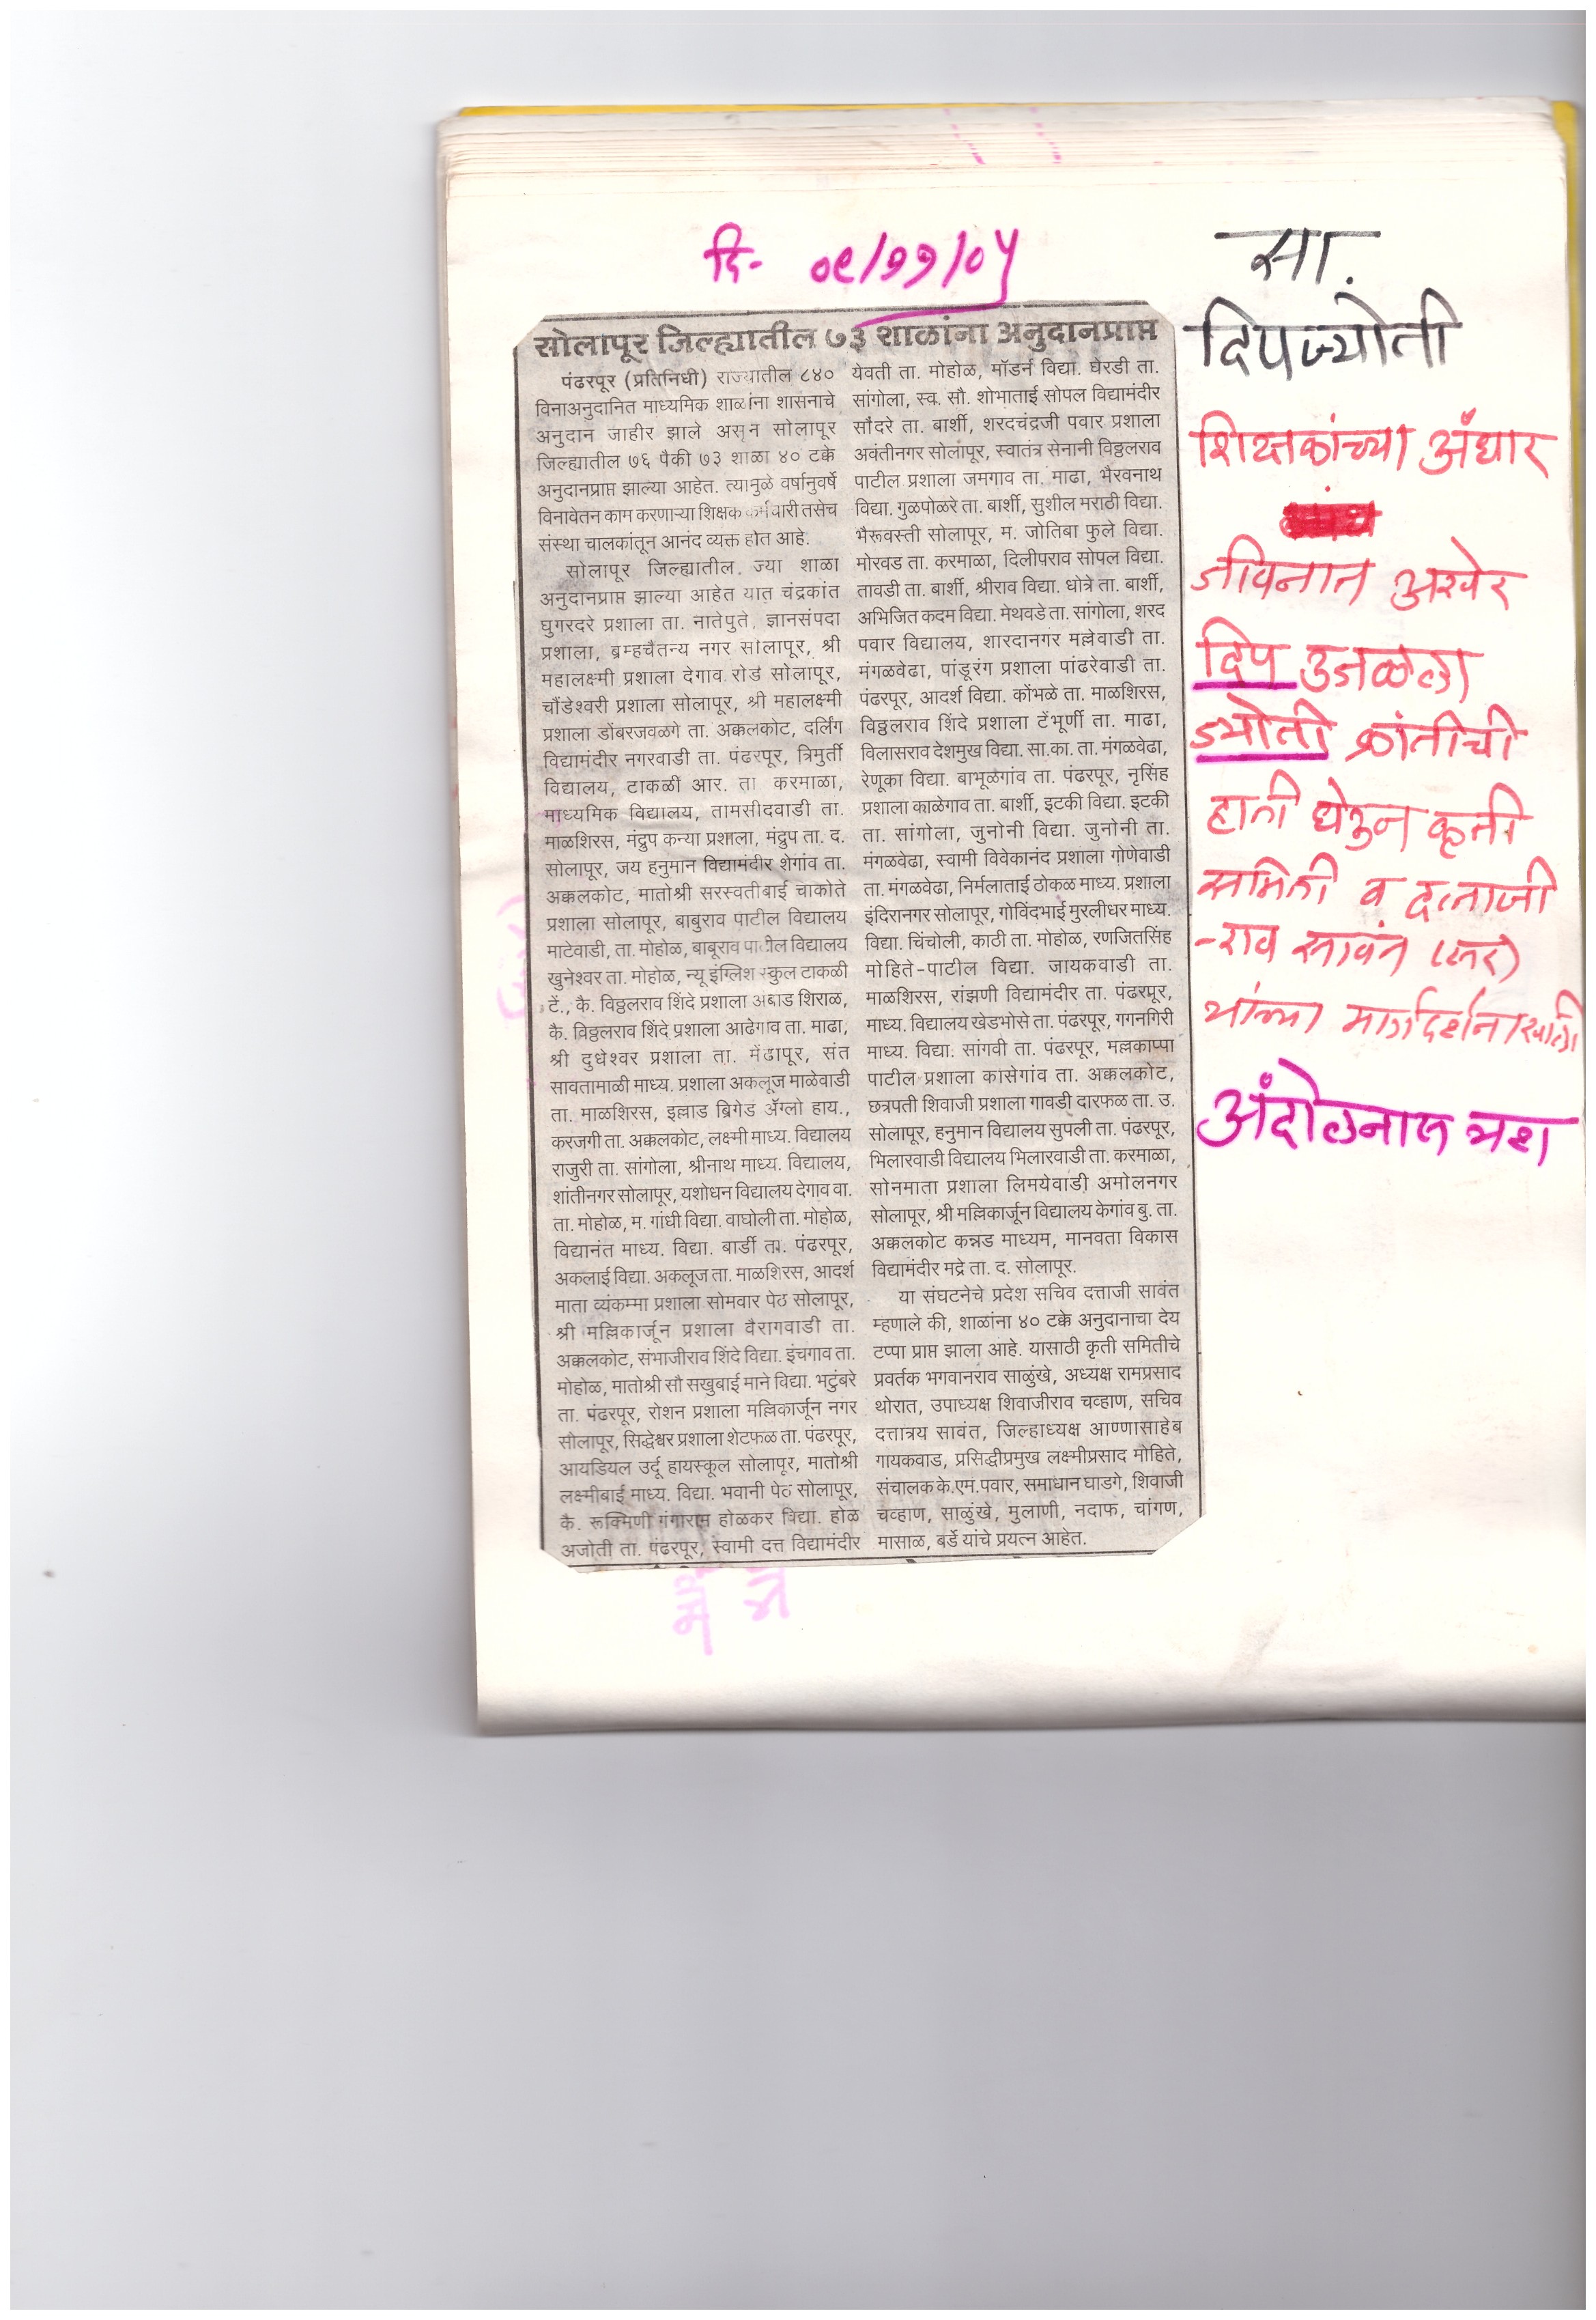 दि- ०९/११/०५
सा.
दिपज्योती
सोलापूर जिल्ह्यातील ७३ शाळांना अनुदानप्राप्त
पंढरपूर (प्रतिनिधी) राज्यातील ८४०
विनाअनुदानित माध्यमिक शाळांना शासनाचे
अनुदान जाहीर झाले असून सोलापूर
जिल्ह्यातील ७६ पैकी ७३ शाळा ४० टक्के
अनुदानप्राप्त झाल्या आहेत. त्यामुळे वर्षानुवर्षे
विनावेतन काम करणाऱ्या शिक्षक कर्मचारी तसेच
संस्था चालकांतून आनंद व्यक्त होत आहे.
सोलापूर जिल्ह्यातील. ज्या शाळा
अनुदानप्राप्त झाल्या आहेत यात चंद्रकांत
घुगरदरे प्रशाला ता. नातेपुते, ज्ञानसंपदा
प्रशाला, ब्रम्हचैतन्य नगर सोलापूर, श्री
महालक्ष्मी प्रशाला देगाव रोड सोलापूर,
चौंडेश्वरी प्रशाला सोलापूर, श्री महालक्ष्मी
प्रशाला डोंबरजवळगे ता. अक्कलकोट, दर्लिंग
विद्यामंदीर नगरवाडी ता. पंढरपूर, त्रिमुर्ती
विद्यालय, टाकळी आर. ता करमाळा,
माध्यमिक विद्यालय, तामसीदवाडी ता.
माळशिरस, मंद्रुप कन्या प्रशाला, मंद्रुप ता. द.
सोलापूर, जय हनुमान विद्यामंदीर शेगांव ता.
अक्कलकोट, मातोश्री सरस्वतीबाई चाकोते
प्रशाला सोलापूर, बाबुराव पाटील विद्यालय
माटेवाडी, ता. मोहोळ, बाबूराव पाटील विद्यालय
खुनेश्वर ता. मोहोळ, न्यू इंग्लिश स्कुल टाकळी
टें., कै. विठ्ठलराव शिंदे प्रशाला अंबाड शिराळ,
कै. विठ्ठलराव शिंदे प्रशाला आढेगाव ता. माढा,
श्री दुधेश्वर प्रशाला ता. मेंढापूर, संत
सावतामाळी माध्य. प्रशाला अकलूज माळेवाडी
ता. माळशिरस, इल्लाड ब्रिगेड ॲंग्लो हाय.,
करजगी ता. अक्कलकोट, लक्ष्मी माध्य. विद्यालय
राजुरी ता. सांगोला, श्रीनाथ माध्य. विद्यालय,
शांतीनगर सोलापूर, यशोधन विद्यालय देगाव वा.
ता. मोहोळ, म. गांधी विद्या. वाघोली ता. मोहोळ,
विद्यानंत माध्य. विद्या. बार्डी ता. पंढरपूर,
अकलाई विद्या. अकलूज ता. माळशिरस, आदर्श
माता व्यंकम्मा प्रशाला सोमवार पेठ सोलापूर,
श्री मल्लिकार्जून प्रशाला वैरागवाडी ता.
अक्कलकोट, संभाजीराव शिंदे विद्या. इंचगाव ता.
मोहोळ, मातोश्री सौ सखुबाई माने विद्या. भटुंबरे
ता. पंढरपूर, रोशन प्रशाला मल्लिकार्जून नगर
सोलापूर, सिद्धेश्वर प्रशाला शेटफळ ता. पंढरपूर,
आयडियल उर्दू हायस्कूल सोलापूर, मातोश्री
लक्ष्मीबाई माध्य. विद्या. भवानी पेठ सोलापूर,
कै. रूक्मिणी गंगाराम होळकर विद्या. होळ
अजोती ता. पंढरपूर, स्वामी दत्त विद्यामंदीर
येवती ता. मोहोळ, मॉडर्न विद्या. घेरडी ता.
सांगोला, स्व. सौ. शोभाताई सोपल विद्यामंदीर
सौंदरे ता. बार्शी, शरदचंद्रजी पवार प्रशाला
अवंतीनगर सोलापूर, स्वातंत्र सेनानी विठ्ठलराव
पाटील प्रशाला जमगाव ता. माढा, भैरवनाथ
विद्या. गुळपोळरे ता. बार्शी, सुशील मराठी विद्या.
भैरूवस्ती सोलापूर, म. जोतिबा फुले विद्या.
मोरवड ता. करमाळा, दिलीपराव सोपल विद्या.
तावडी ता. बार्शी, श्रीराव विद्या. धोत्रे ता. बार्शी,
अभिजित कदम विद्या. मेथवडे ता. सांगोला, शरद
पवार विद्यालय, शारदानगर मल्लेवाडी ता.
मंगळवेढा, पांडूरंग प्रशाला पांढरेवाडी ता.
पंढरपूर, आदर्श विद्या. कोंभळे ता. माळशिरस,
विठ्ठलराव शिंदे प्रशाला टेंभूर्णी ता. माढा,
विलासराव देशमुख विद्या. सा.का. ता. मंगळवेढा,
रेणूका विद्या. बाभूळेगांव ता. पंढरपूर, नृसिंह
प्रशाला काळेगाव ता. बार्शी, इटकी विद्या. इटकी
ता. सांगोला, जुनोनी विद्या. जुनोनी ता.
मंगळवेढा, स्वामी विवेकानंद प्रशाला गोणेवाडी
ता. मंगळवेढा, निर्मलाताई ठोकळ माध्य. प्रशाला
इंदिरानगर सोलापूर, गोविंदभाई मुरलीधर माध्य.
विद्या. चिंचोली, काठी ता. मोहोळ, रणजितसिंह
मोहिते-पाटील विद्या. जायकवाडी ता.
माळशिरस, रांझणी विद्यामंदीर ता. पंढरपूर,
माध्य. विद्यालय खेडभोसे ता. पंढरपूर, गगनगिरी
माध्य. विद्या. सांगवी ता. पंढरपूर, मल्लकाप्पा
पाटील प्रशाला कासेगांव ता. अक्कलकोट,
छत्रपती शिवाजी प्रशाला गावडी दारफळ ता. उ.
सोलापूर, हनुमान विद्यालय सुपली ता. पंढरपूर,
भिलारवाडी विद्यालय भिलारवाडी ता. करमाळा,
सोनमाता प्रशाला लिमयेवाडी अमोलनगर
सोलापूर, श्री मल्लिकार्जून विद्यालय केगांव बु. ता.
अक्कलकोट कन्नड माध्यम, मानवता विकास
विद्यामंदीर मद्रे ता. द. सोलापूर.
या संघटनेचे प्रदेश सचिव दत्ताजी सावंत
म्हणाले की, शाळांना ४० टक्के अनुदानाचा देय
टप्पा प्राप्त झाला आहे. यासाठी कृती समितीचे
प्रवर्तक भगवानराव साळुंखे, अध्यक्ष रामप्रसाद
थोरात, उपाध्यक्ष शिवाजीराव चव्हाण, सचिव
दत्तात्रय सावंत, जिल्हाध्यक्ष आण्णासाहेब
गायकवाड, प्रसिद्धीप्रमुख लक्ष्मीप्रसाद मोहिते,
संचालक के.एम.पवार, समाधान घाडगे, शिवाजी
चव्हाण, साळुंखे, मुलाणी, नदाफ, चांगण,
मासाळ, बर्डे यांचे प्रयत्न आहेत.
शिक्षकांच्या अंधार
जीवनात अखेर
दिप उजळला
ज्योती क्रांतीची
हाती घेउन कृती
समिती व दत्ताजी
-राव सावंत (सर)
यांच्या मार्गदर्शनाखाली
अंदोलनास यश